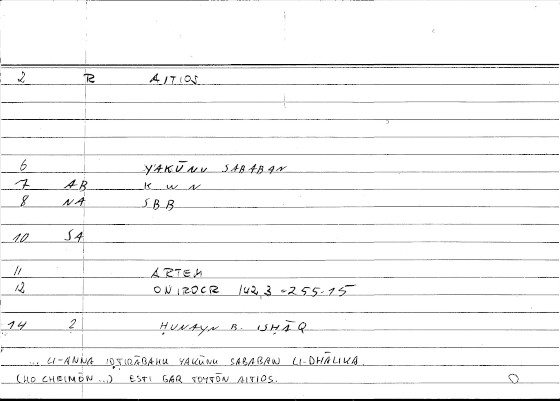 2 R AITIOS
6 YAKŪNU SABABAN
7 AB K W N
8 NA SBB
10 SA
11 ARTEM
12 ONIROCR 142,3 = 255-15
14 2 ḤUNAYN B. ISḤĀQ
... LI-ANNA IḌṬIRĀBAHU YAKŪNU SABABAN LI-DHĀLIKA.
(HO CHEIMŌN ...) ESTI GAR TOYTŌN AITIOS.